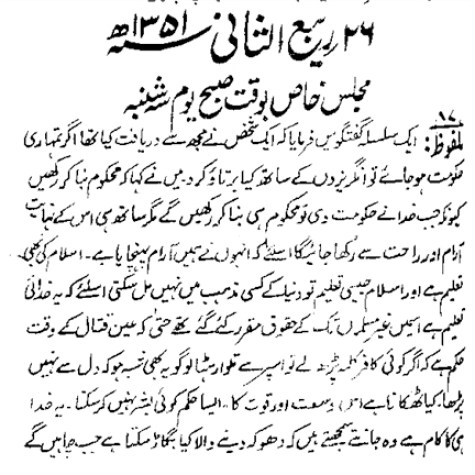 ۲۶ ربیع الثانی سنہ ۱۳۵۱ھ
مجلس خاص بوقت صبح یوم شنبہ
۱۷
ملفوظ: ایک سلسلہ گفتگو میں فرمایا کہ ایک شخص نے مجھ سے دریافت کیا تھا اگر تمہاری
حکومت ہو جائے تو انگریزوں کے ساتھ کیا برتاؤ کرو میں نے کہا کہ محکوم بنا کر رکھیں
کیونکہ جب خدا نے حکومت دی تو محکوم ہی بنا کر رکھیں گے مگر ساتھ ہی اس کے نہایت
آرام اور راحت سے رکھا جائیگا اسلئے کہ انہوں نے ہمیں آرام پہنچایا ہے۔ اسلام کی بھی
تعلیم ہے اور اسلام جیسی تعلیم تو دنیا کے کسی مذہب میں نہیں مل سکتی اسلئے کہ یہ خدائی
تعلیم ہے اسمیں غیر مسلموں تک کے حقوق مقرر کئے گئے تھے حتی کہ عین قتال کے وقت
حکم ہے کہ اگر کوئی کافر کلمہ پڑھ لے تو اسپر سے تلوار ہٹا لو گو یہ بھی شبہ ہو کہ دل سے نہیں
پڑھا، کیا ٹھکانا ہے اس وسعت اور قوت کا۔ ایسا حکم کوئی بشر نہیں کر سکتا۔ یہ خدا
ہی کا کام ہے وہ جانتے سمجھتے ہیں کہ دھوکہ دینے والا کیا بگاڑ سکتا ہے جب چاہیں گے